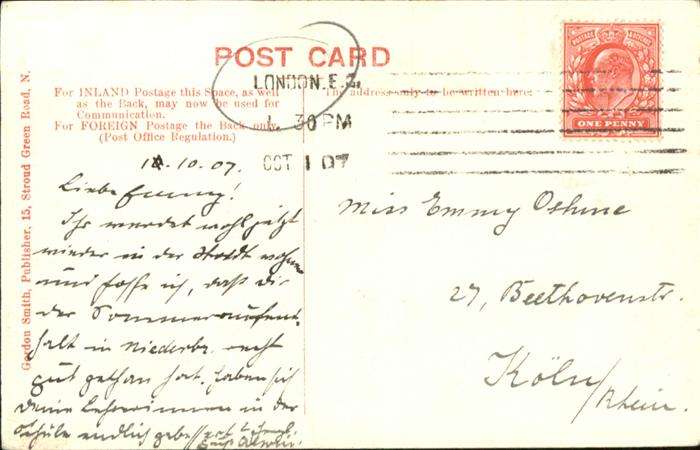 POST CARD
For INLAND Postage this Space, as well
as the Back, may now be used for
Communication.
For FOREIGN Postage the Back only.
(Post Office Regulation.)
The address only to be written here.
LONDON. E.C.
1 30 PM
OCT 1 07
POSTAGE & REVENUE
ONE PENNY
Gordon Smith, Publisher, 15, Stroud Green Road, N.
1.10.07.
Liebe Emmy!
Ihr werdet wohl jetzt
wieder in der Stadt wohnen
und hoffe ich, daß dir
der Sommeraufent-
halt in Niederbr. recht
gut gethan hat. Haben sich
deine Lehrerinnen in der
Schule endlich gebessert
Miss Emmy Oehme
27, Beethovenstr.
Köln/
Rhein.